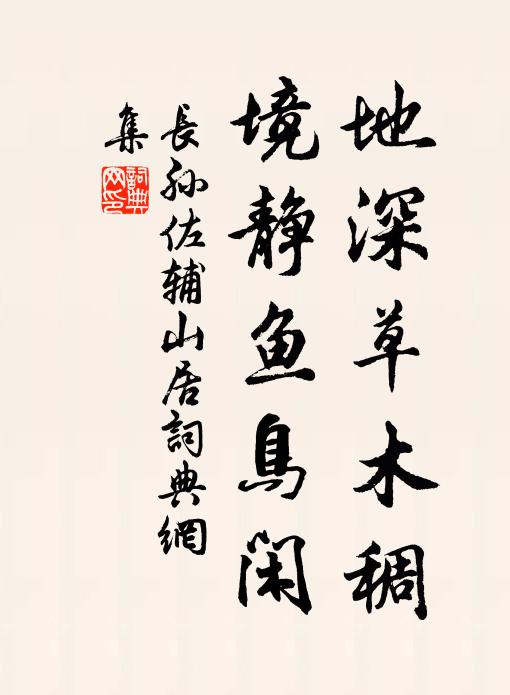 地深草木稠
境静鱼鳥閑
長孙佐辅山居詞典網
集
詞典
网印